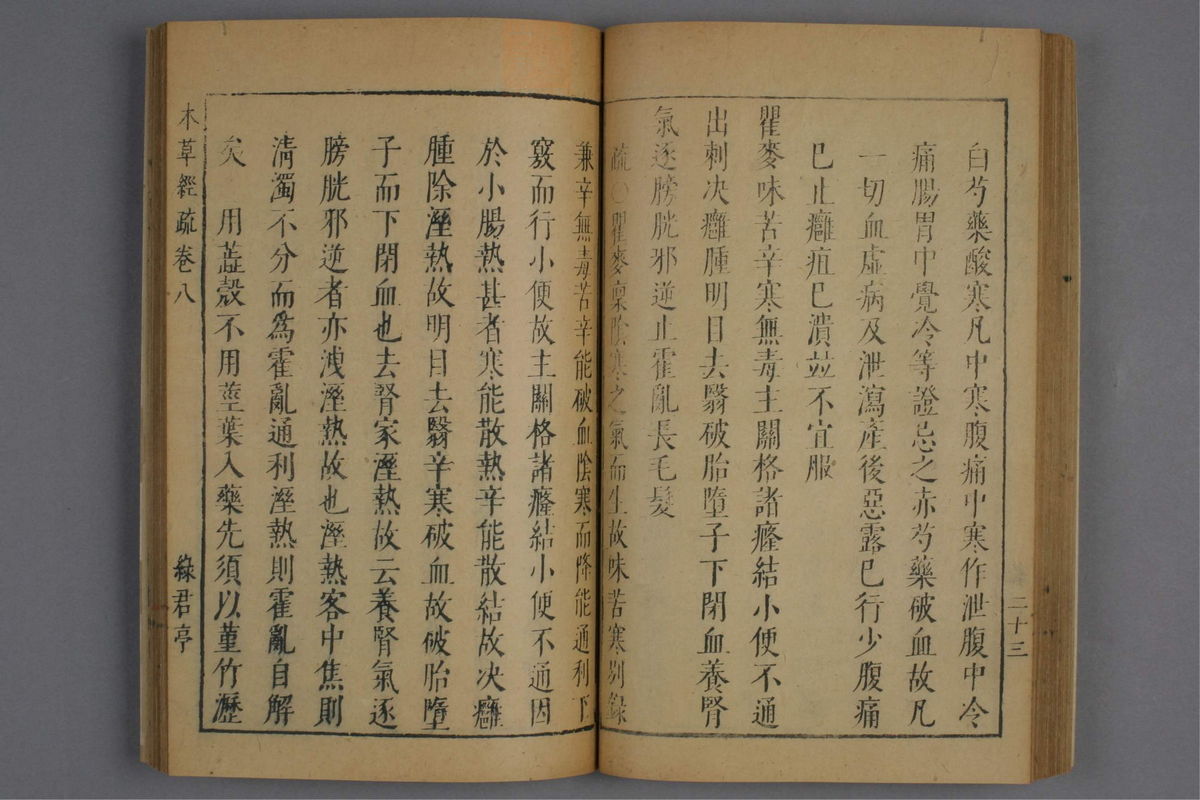 白芍藥酸寒凡中寒腹痛中寒作泄腹中冷
痛腸胃中覺冷等證忌之赤芍藥破血故凡
一切血虛病及泄瀉產後惡露已行少腹痛
已止癰疽已潰並不宜服
瞿麥味苦辛寒無毒主關格諸癃結小便不通
出刺決癰腫明目去翳破胎墮子下閉血養腎
氣逐膀胱邪逆止霍亂長毛髮
疏〇瞿麥稟陰寒之氣而生故味苦寒別錄
兼辛無毒苦辛能破血陰寒而降能通利下
竅而行小便故主關格諸癃結小便不通因
於小腸熱甚者寒能散熱辛能散結故决癰
腫除溼熱故明目去翳辛寒破血故破胎墮
子而下閉血也去腎家溼熱故云養腎氣逐
膀胱邪逆者亦洩溼熱故也溼熱客中焦則
清濁不分而為霍亂通利溼熱則霍亂自解
矣　用蕋殼不用莖葉入藥先須以菫竹瀝
本草經疏卷八
綠君亭
二十三